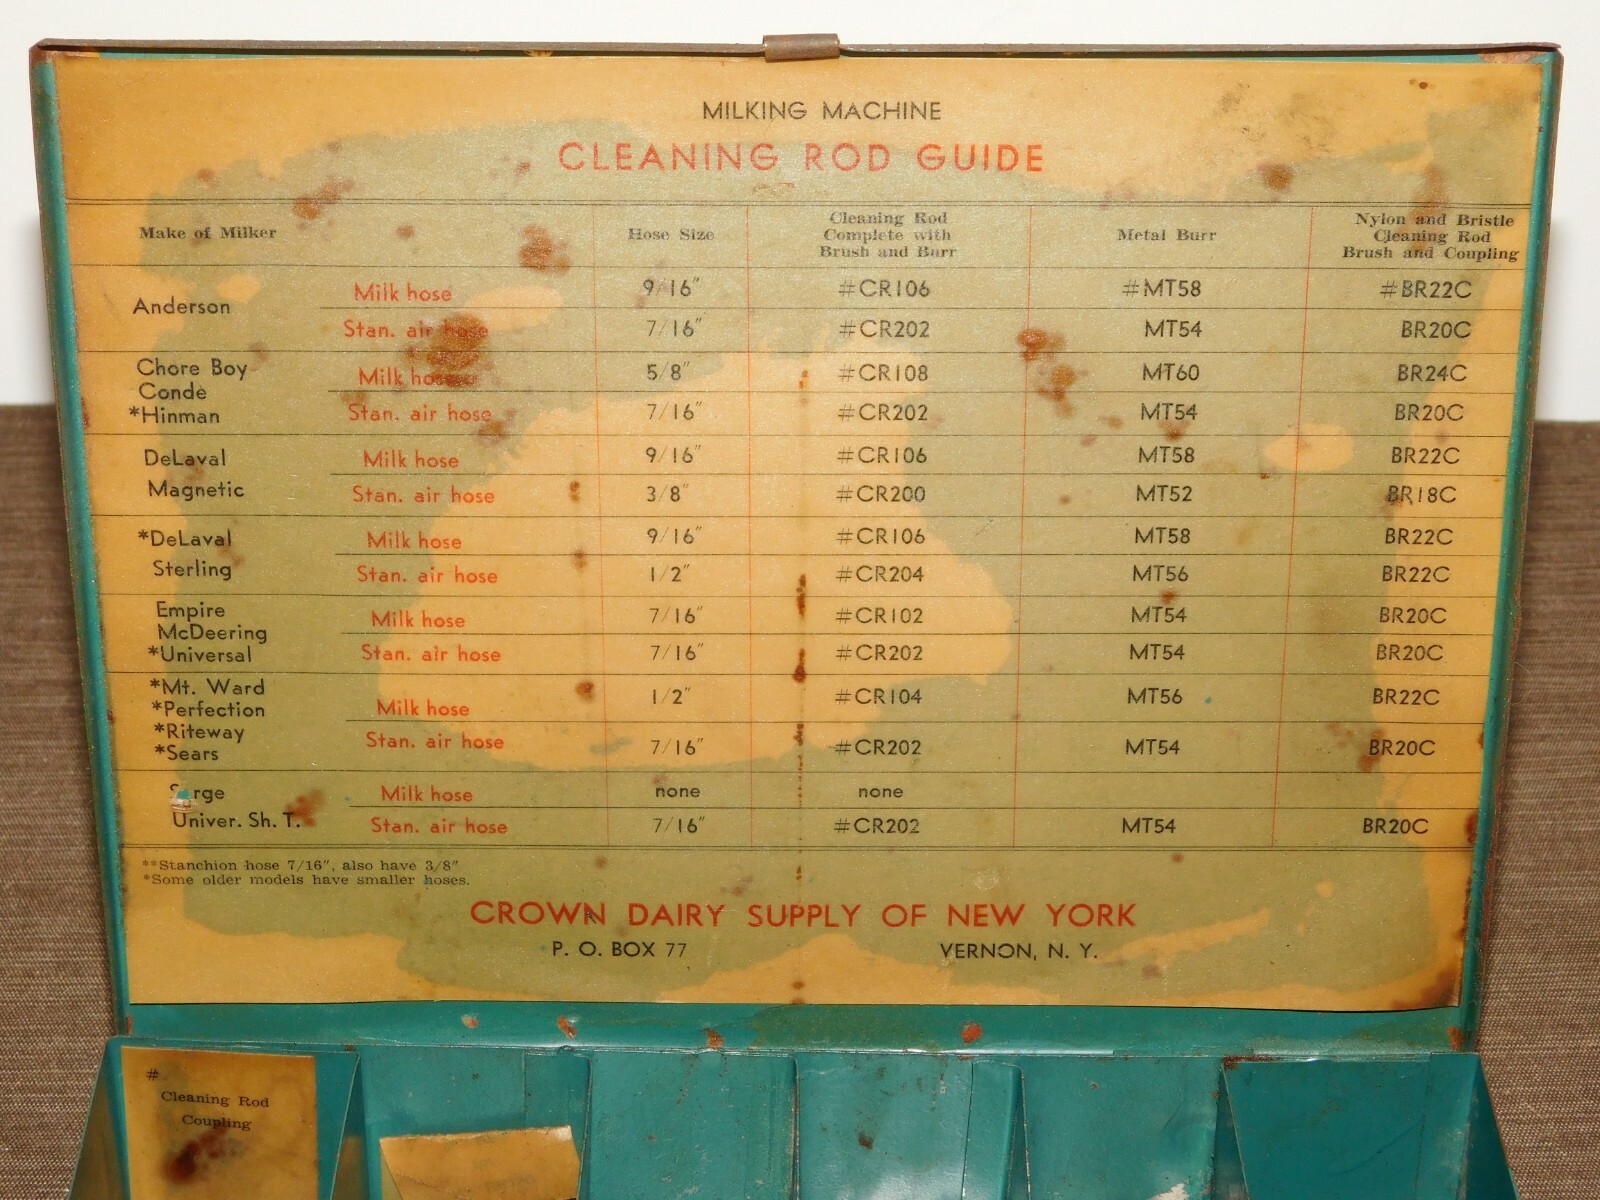 MILKING MACHINE
CLEANING ROD GUIDE
Make of Milker Hose Size Cleaning Rod Complete with Brush and Burr Metal Burr Nylon and Bristle Cleaning Rod Brush and Coupling
Anderson Milk hose 9/16" #CR106 #MT58 #BR22C
Stan. air hose 7/16" #CR202 MT54 BR20C
Chore Boy Milk hose 5/8" #CR108 MT60 BR24C
Condè
*Hinman Stan. air hose 7/16" #CR202 MT54 BR20C
DeLaval Milk hose 9/16" #CR106 MT58 BR22C
Magnetic Stan. air hose 3/8" #CR200 MT52 BR18C
*DeLaval Milk hose 9/16" #CR106 MT58 BR22C
Sterling Stan. air hose 1/2" #CR204 MT56 BR22C
Empire Milk hose 7/16" #CR102 MT54 BR20C
McDeering
*Universal Stan. air hose 7/16" #CR202 MT54 BR20C
*Mt. Ward 1/2" #CR104 MT56 BR22C
*Perfection Milk hose
*Riteway Stan. air hose 7/16" #CR202 MT54 BR20C
*Sears
Surge Milk hose none none
Univer. Sh. T. Stan. air hose 7/16" #CR202 MT54 BR20C
**Stanchion hose 7/16", also have 3/8"
*Some older models have smaller hoses.
CROWN DAIRY SUPPLY OF NEW YORK
P. O. BOX 77 VERNON, N. Y.
#
Cleaning Rod
Coupling